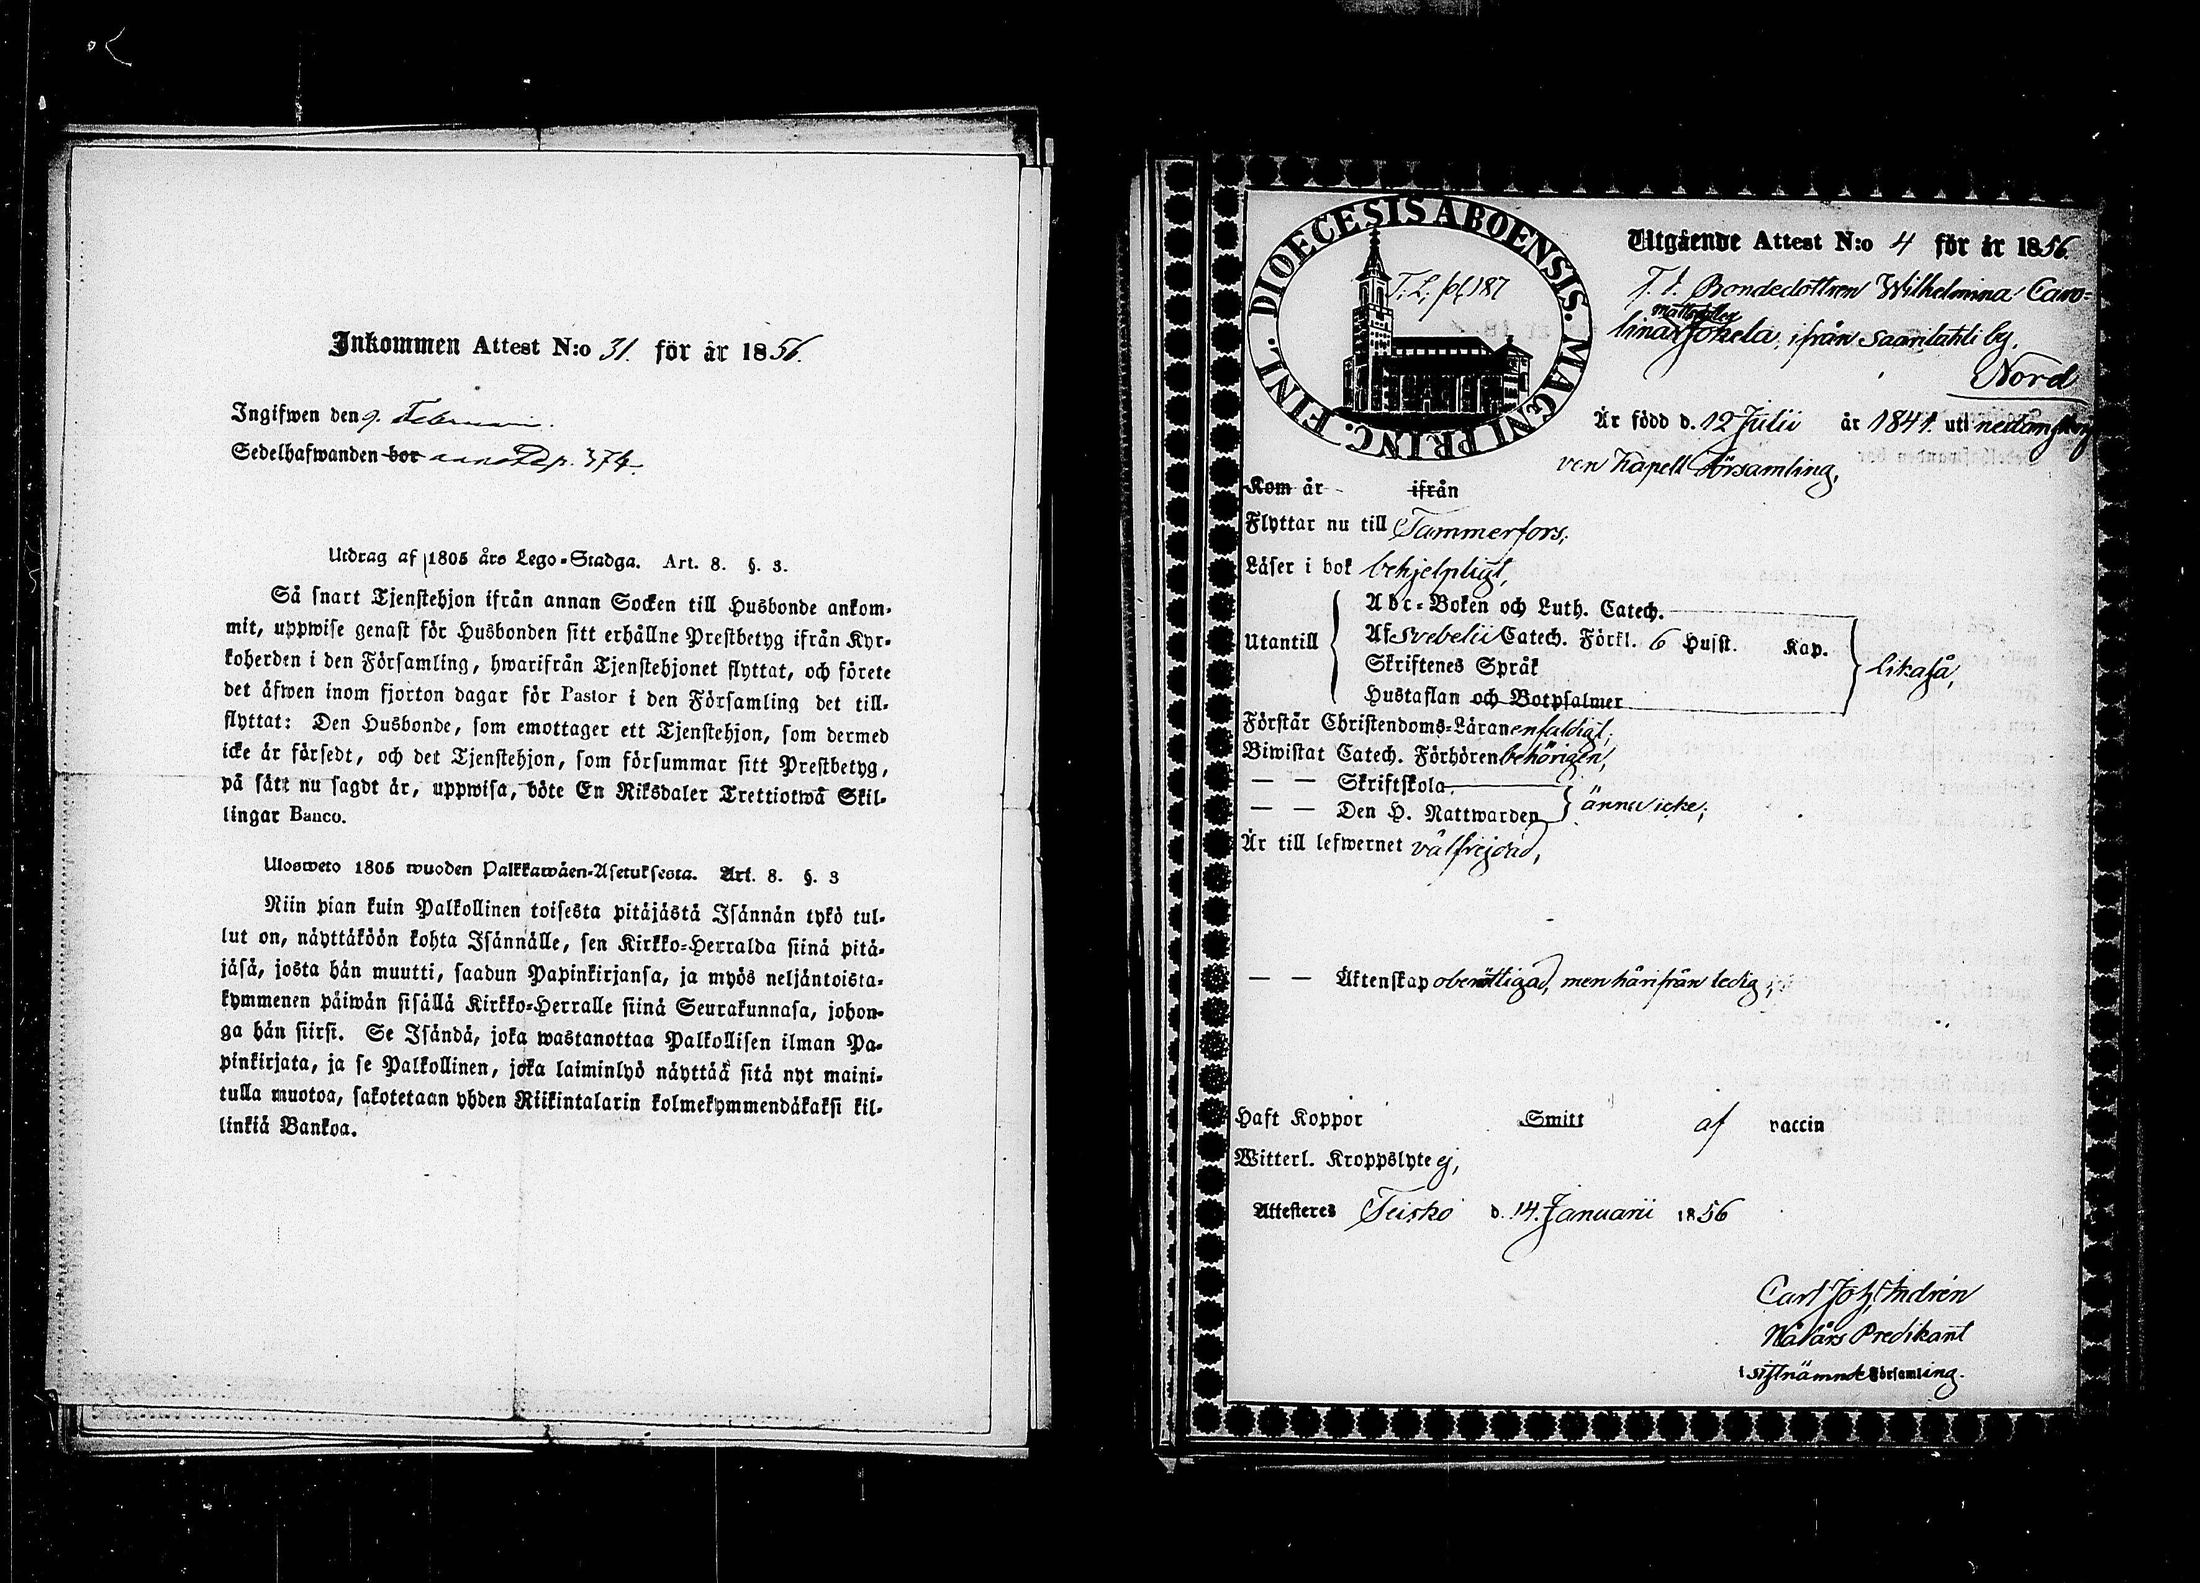 Inkommen Attest N:o 31. för år 1856.
Ingifwen den 9. Februari.
Sedelhafwanden bor p. 374.
Utdrag af 1805 års Lego-Stadga. Art. 8. §. 3.
Så snart Tjenstehjon ifrån annan Socken till Husbonde ankom-
mit, uppwise genast för Husbonden sitt erhållne Prestbetyg ifrån Kyr-
koherden i den Församling, hwarifrån Tjenstehjonet flyttat, och förete
det äfwen inom fjorton dagar för Pastor i den Församling det till-
flyttat: Den Husbonde, som emottager ett Tjenstehjon, som dermed
icke är försedt, och det Tjenstehjon, som försummar sitt Prestbetyg,
på sätt nu sagdt är, uppwisa, böte En Riksdaler Trettiotwå Skil-
lingar Banco.
Ulosweto 1805 wuoden Palkkawäen-Asetuksesta. Art. 8. §. 3
Niin pian kuin Palkollinen toisesta pitäjästä Isännän tykö tul-
lut on, näyttäköön kohta Isännälle, sen Kirkko-Herralda siinä pitä-
jäsä, josta hän muutti, saadun Papinkirjansa, ja myös neljäntoista-
kymmenen päiwän sisällä Kirkko-Herralle siinä Seurakunnasa, johon-
ga hän siirsi. Se Isändä, joka wastanottaa Palkollisen ilman Pa-
pinkirjata, ja se Palkollinen, joka laiminlyö näyttää sitä nyt maini-
tulla muotoa, sakotetaan yhden Riikintalarin kolmekymmendäkaksi kil-
linkiä Bankoa.
DIOECESIS ABOENSIS. MAGNI PRINC. FINL.
T. L. pf 187
Utgående Attest N:o 4 för år 1856.
Bondedottren Wilhelmina Caro-
lina Mattsdotter Jokela, ifrån Saarilahti by.
Nord
Är född d. 12 Julii år 1841. uti
ven Kapell Församling,
Kom år ifrån
Flyttar nu till Tammerfors,
Läser i bok behjelpligt,
Utantill
Abc-Boken och Luth. Catech.
Af Svebelii Catech. Förkl. 6 Hufst. Kap.
Skriftenes Språk
Hustaflan och Botpsalmer
likaså,
Förstår Christendoms-Läran enfaldigt,
Biwistat Catech. Förhören behörigen,
— — Skriftskola
— — Den H. Nattwarden
ännu icke,
Är till lefwernet välfrejdad,
— — Äktenskap oberättigad, men härifrån ledig,
Haft Koppor Smitt af vaccin
Witterl. Kroppslyte ej,
Attesteres Teisko d. 14. Januarii 1856
Carl Joh. Andrén
Predikant
i sistnämnde Församling.